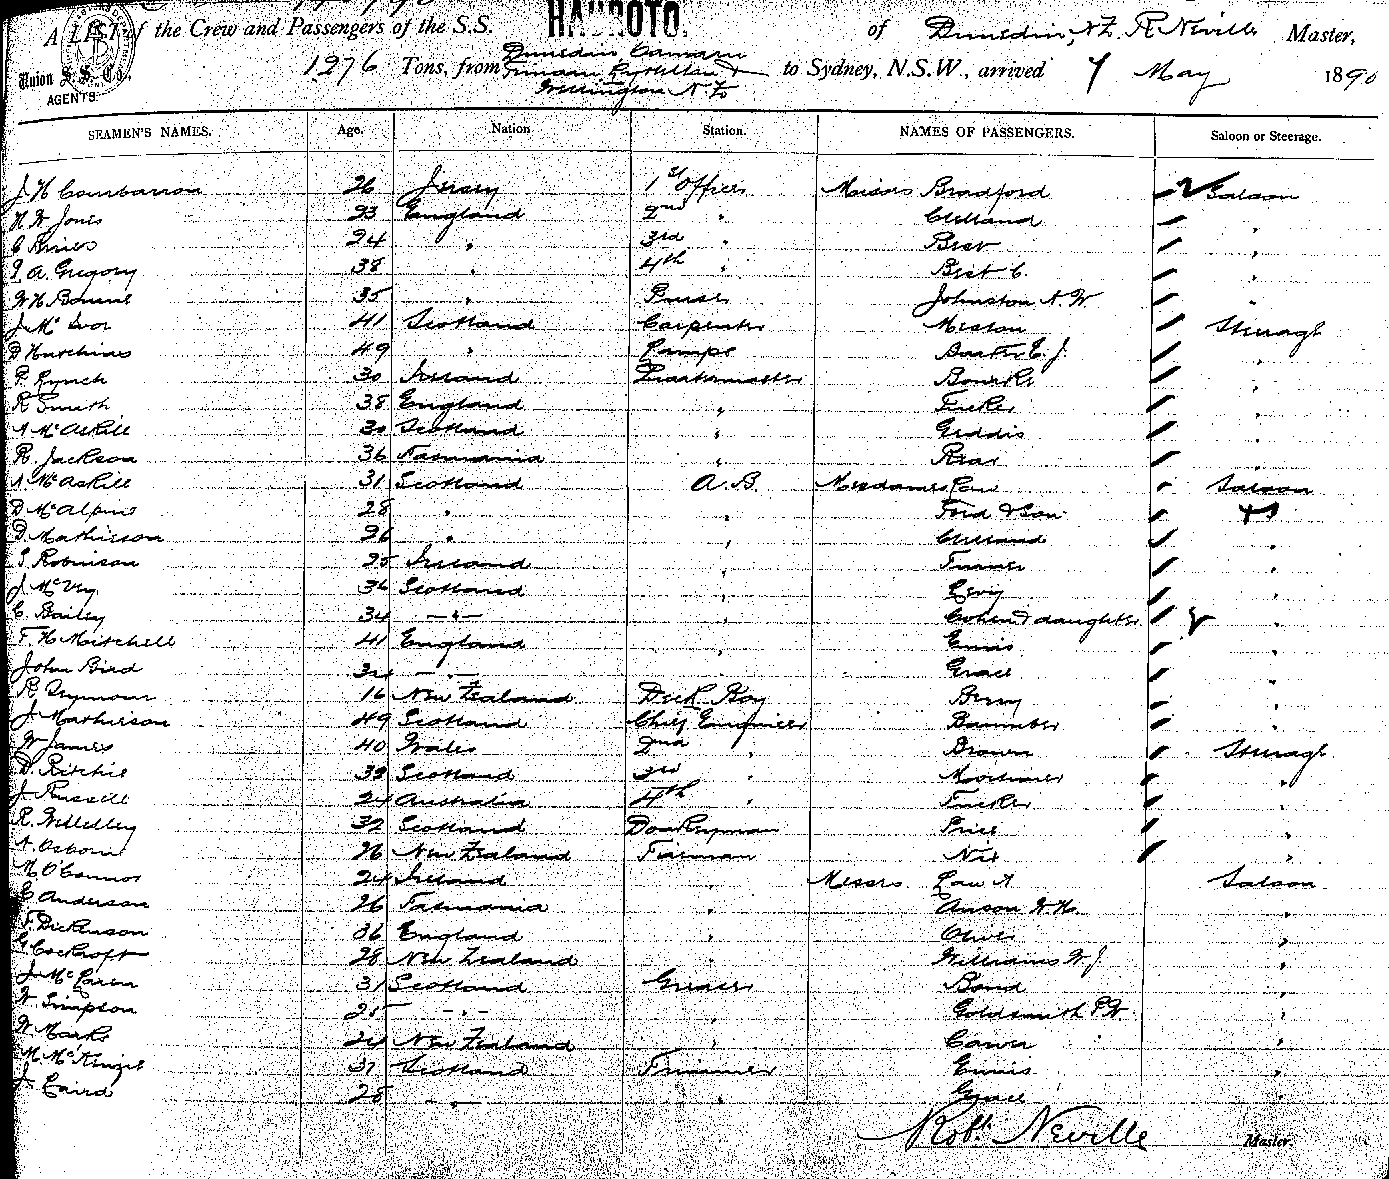 A LIST of the Crew and Passengers of the S.S. HAUROTO. of Dunedin, NZ, R Neville Master,
Union S.S. Co., AGENTS.
1276 Tons, from Dunedin Oamaru Timaru Lyttelton & Wellington NZ to Sydney, N.S.W., arrived 7 May 1890
SEAMEN'S NAMES. Age. Nation Station. NAMES OF PASSENGERS. Saloon or Steerage.
26 Jersey 1st Officer Misses Bradford Saloon
H W Jones 23 England 2nd " Clelland "
24 " 3rd " Best "
A. Gregory 38 " 4th " Best C. "
W H Bourne 35 " Purser Johnston N W "
J. McIvor 41 Scotland Carpenter Meston Steerage
D Hutchins 49 " Lamps Baxter E. J. "
P. Lynch 30 Ireland Quartermaster Bourke "
R Smith 38 England " Tucker "
McAskill 30 Scotland " Geddis "
R. Jackson 36 Tasmania " Rear "
McAskill 31 Scotland A.B. Mesdames Law Saloon
D McAlpine 28 " " Ford & Son
D. Mathieson 26 " " Clelland "
Robinson 25 Ireland " Turner "
J. McVey 36 Scotland " Levy "
C. Bailey 34 — " — " Cohen & daughter "
F. H. Mitchell 41 England " Ennis "
John Bird — " — Grace "
R. Seymour 16 New Zealand Deck Boy Berry "
J. Mathieson 49 Scotland Chief Engineer Bannber "
W James 40 Wales 2nd " Brown Steerage
D. Ritchie 33 Scotland 3rd " Mortimer "
J. Russell 24 Australia 4th " Tucker "
R. 32 Scotland Donkeyman Price "
Osborne 26 New Zealand Fireman Nix "
M. O'Connor 24 Ireland " Messrs Law A Saloon
E Anderson 26 Tasmania " Anson W. H. "
F. Dickenson 36 England " Oliver "
G. Cockroft 28 New Zealand " Williams W. J. "
J. McLaren 31 Scotland Greaser Bond "
W. Simpson 25 — " — " Goldsmith P. W.
W. Marks 24 New Zealand " Carver "
M. McKenzie 31 Scotland Trimmer Ennis "
J. Laird 28 — " — " Grace "
Robt. Neville Master.